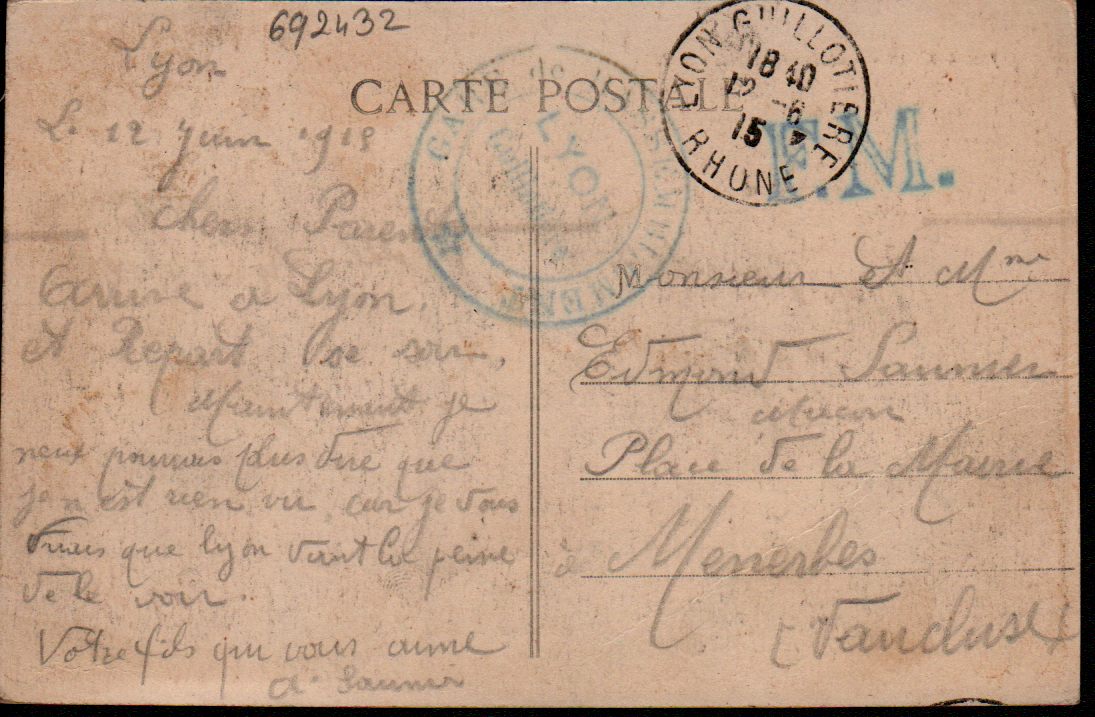 692432
Lyon
CARTE POSTALE
LYON GUILLOTIERE
18 40
12 -6
15
RHONE
GARE de RASSEMBLEMENT
LYON
Guillotière
F.M.
Le 12 Juin 1915
Chers Parents
Arrivé a Lyon,
et Repart se soir,
Maintenant je
neux pourrais plus dire que
je n'est rien vu, car je vous
dirais que lyon vaut la peine
de le voir.
Votre fils qui vous aime
Saunier
Monsieur Et Mme
Edmond Saunier
Macon
Place de la Mairie
à Menerbes
(Vaucluse)